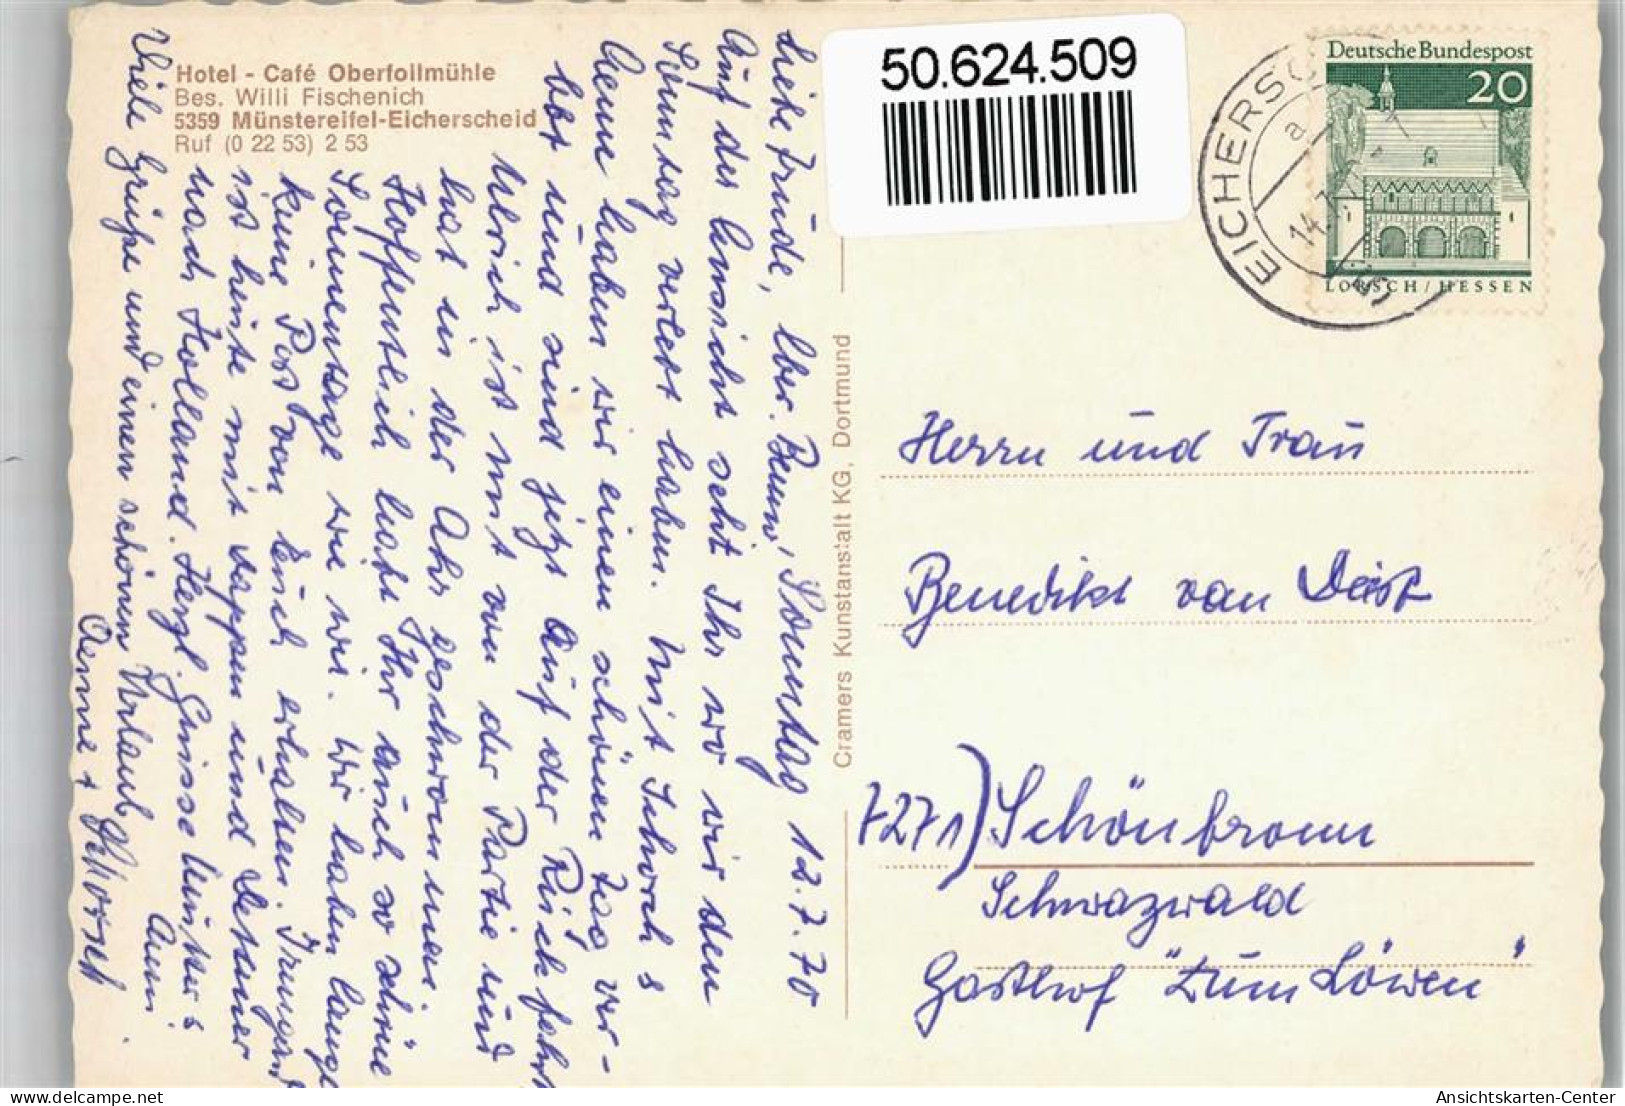 Hotel - Café Oberfollmühle
Bes. Willi Fischenich
5359 Münstereifel-Eicherscheid
Ruf (0 22 53) 2 53
50.624.509
Deutsche Bundespost
20
LORSCH / HESSEN
EICHERSC
a
14.7.
Liebe Trude, lber. Benno, Sonntag 12.7.70
Auf der Ansicht seht Ihr wo wir den
Sonntag verlebt haben. Mit Schorch &
Aenne haben wir einen schönen Tag ver-
lebt und sind jetzt auf der Rückfahrt
Ulrich ist mit von der Partie und
hat in der Ahr geschwommen.
Hoffentlich habt Ihr auch so schöne
Sonnentage wie wir. Wir haben lange
keine Post von Euch erhalten. Irmgard
ist heute mit
nach Holland. Herzl. Grüsse
Viele Grüße und einen schönen Urlaub
Aenne + Schorsch
Cramers Kunstanstalt KG, Dortmund
Herrn und Frau
Benedikt van Deist
7271) Schönbronn
Schwazwald
Gasthof "Zum Löwen"
Ansichtskarten-Center